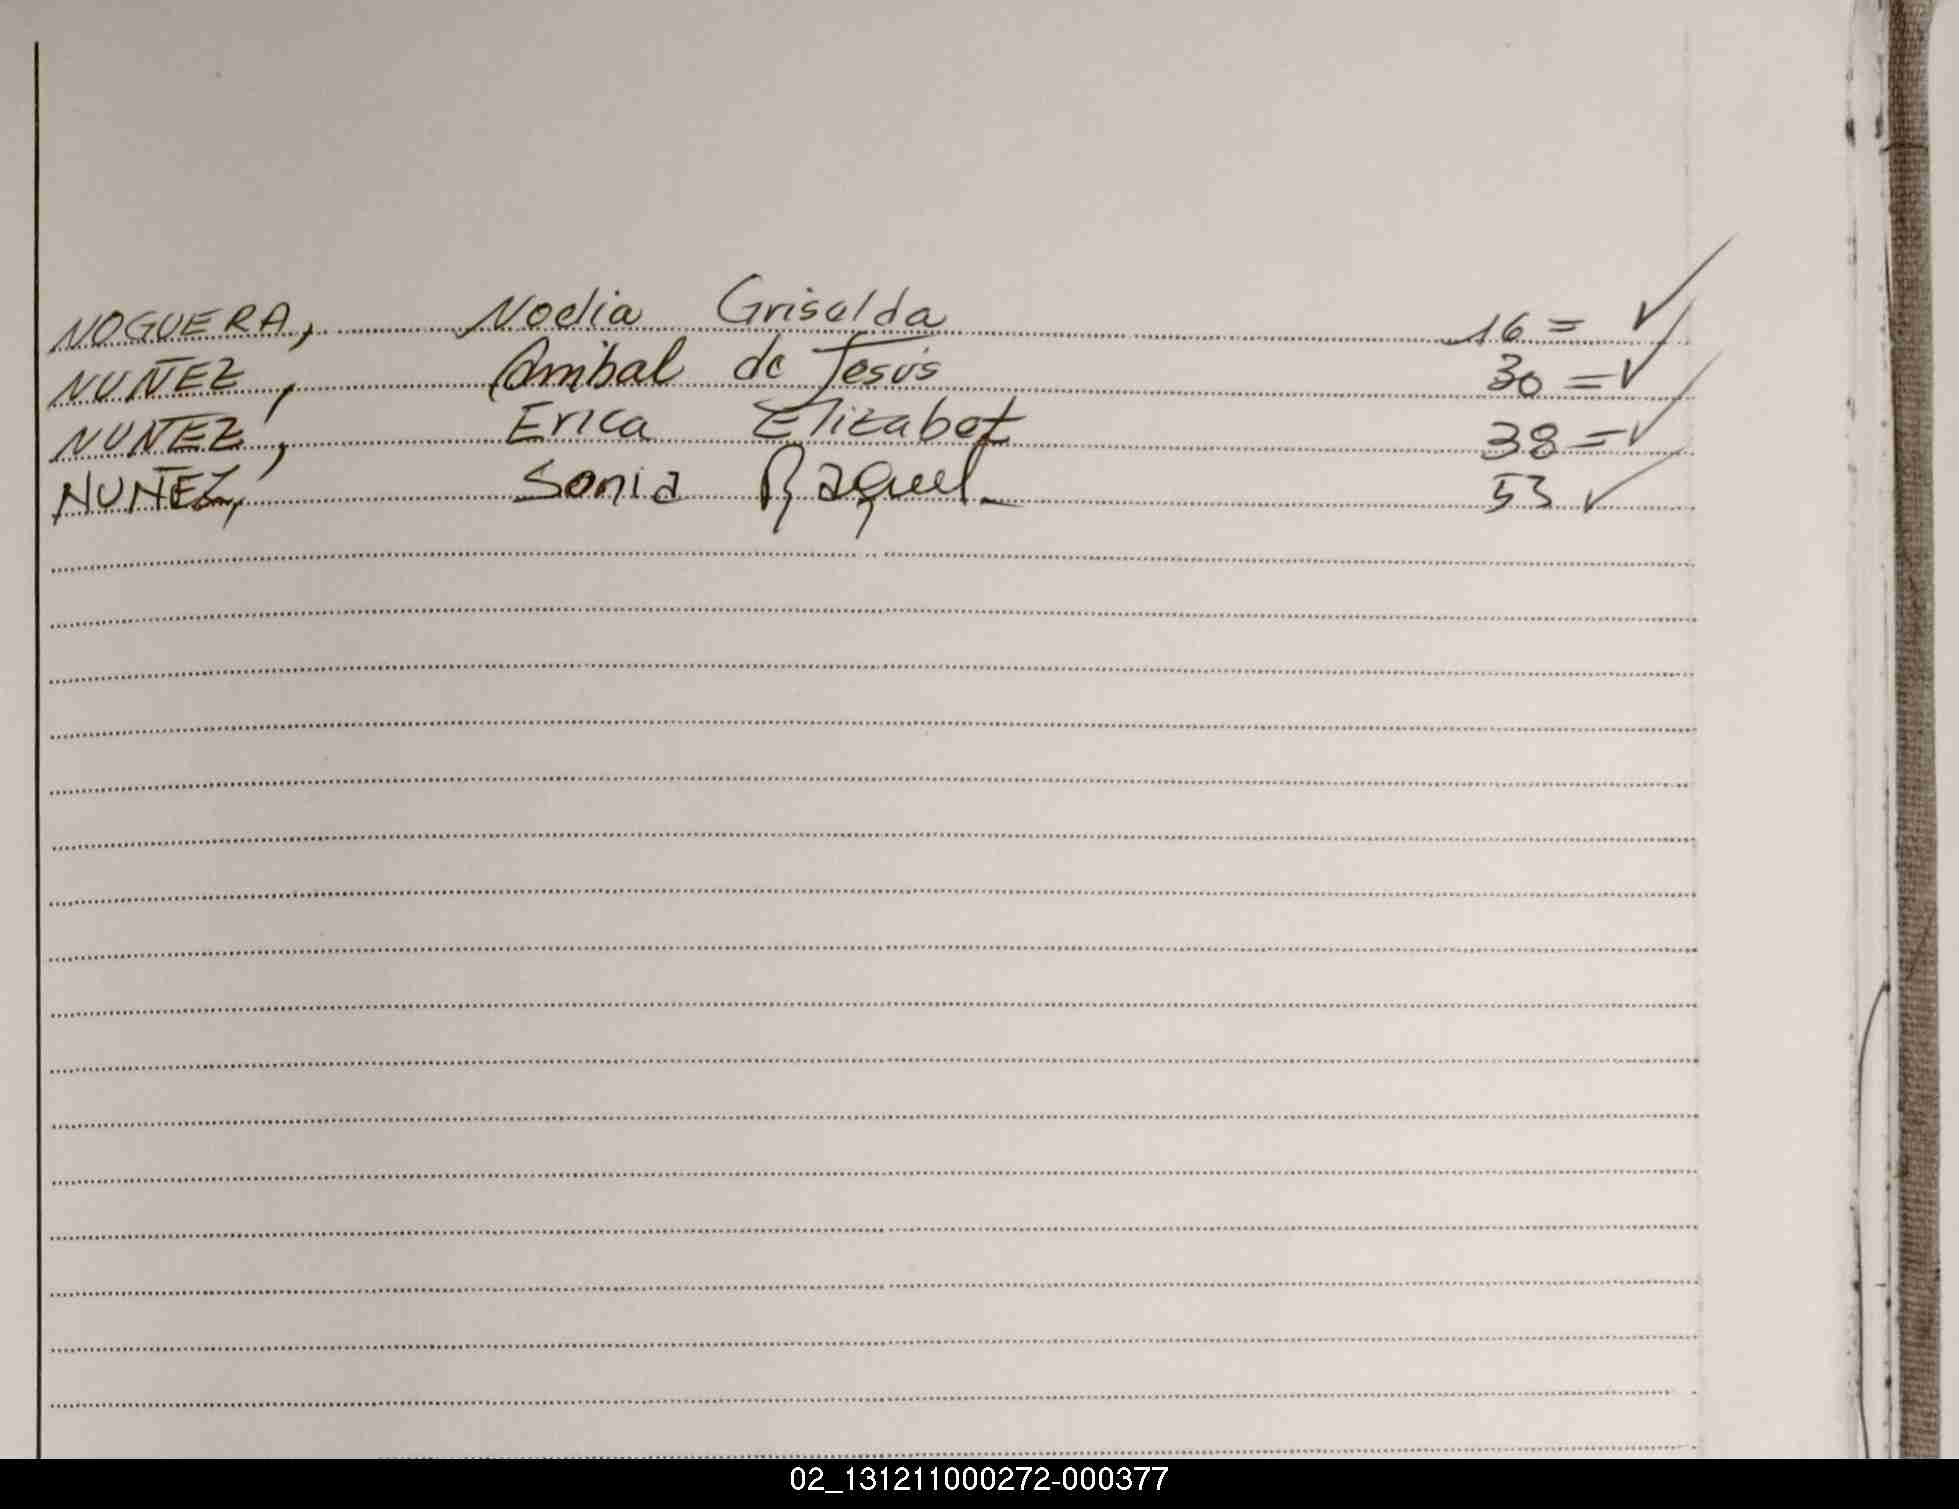 NOGUERA, Noelia Griselda 16 = ✓
NUÑEZ, Anibal de Jesús 30 = ✓
NUÑEZ, Erica Elizabet 38 = ✓
NUÑEZ, Sonia Raquel 53 ✓
02_131211000272-000377